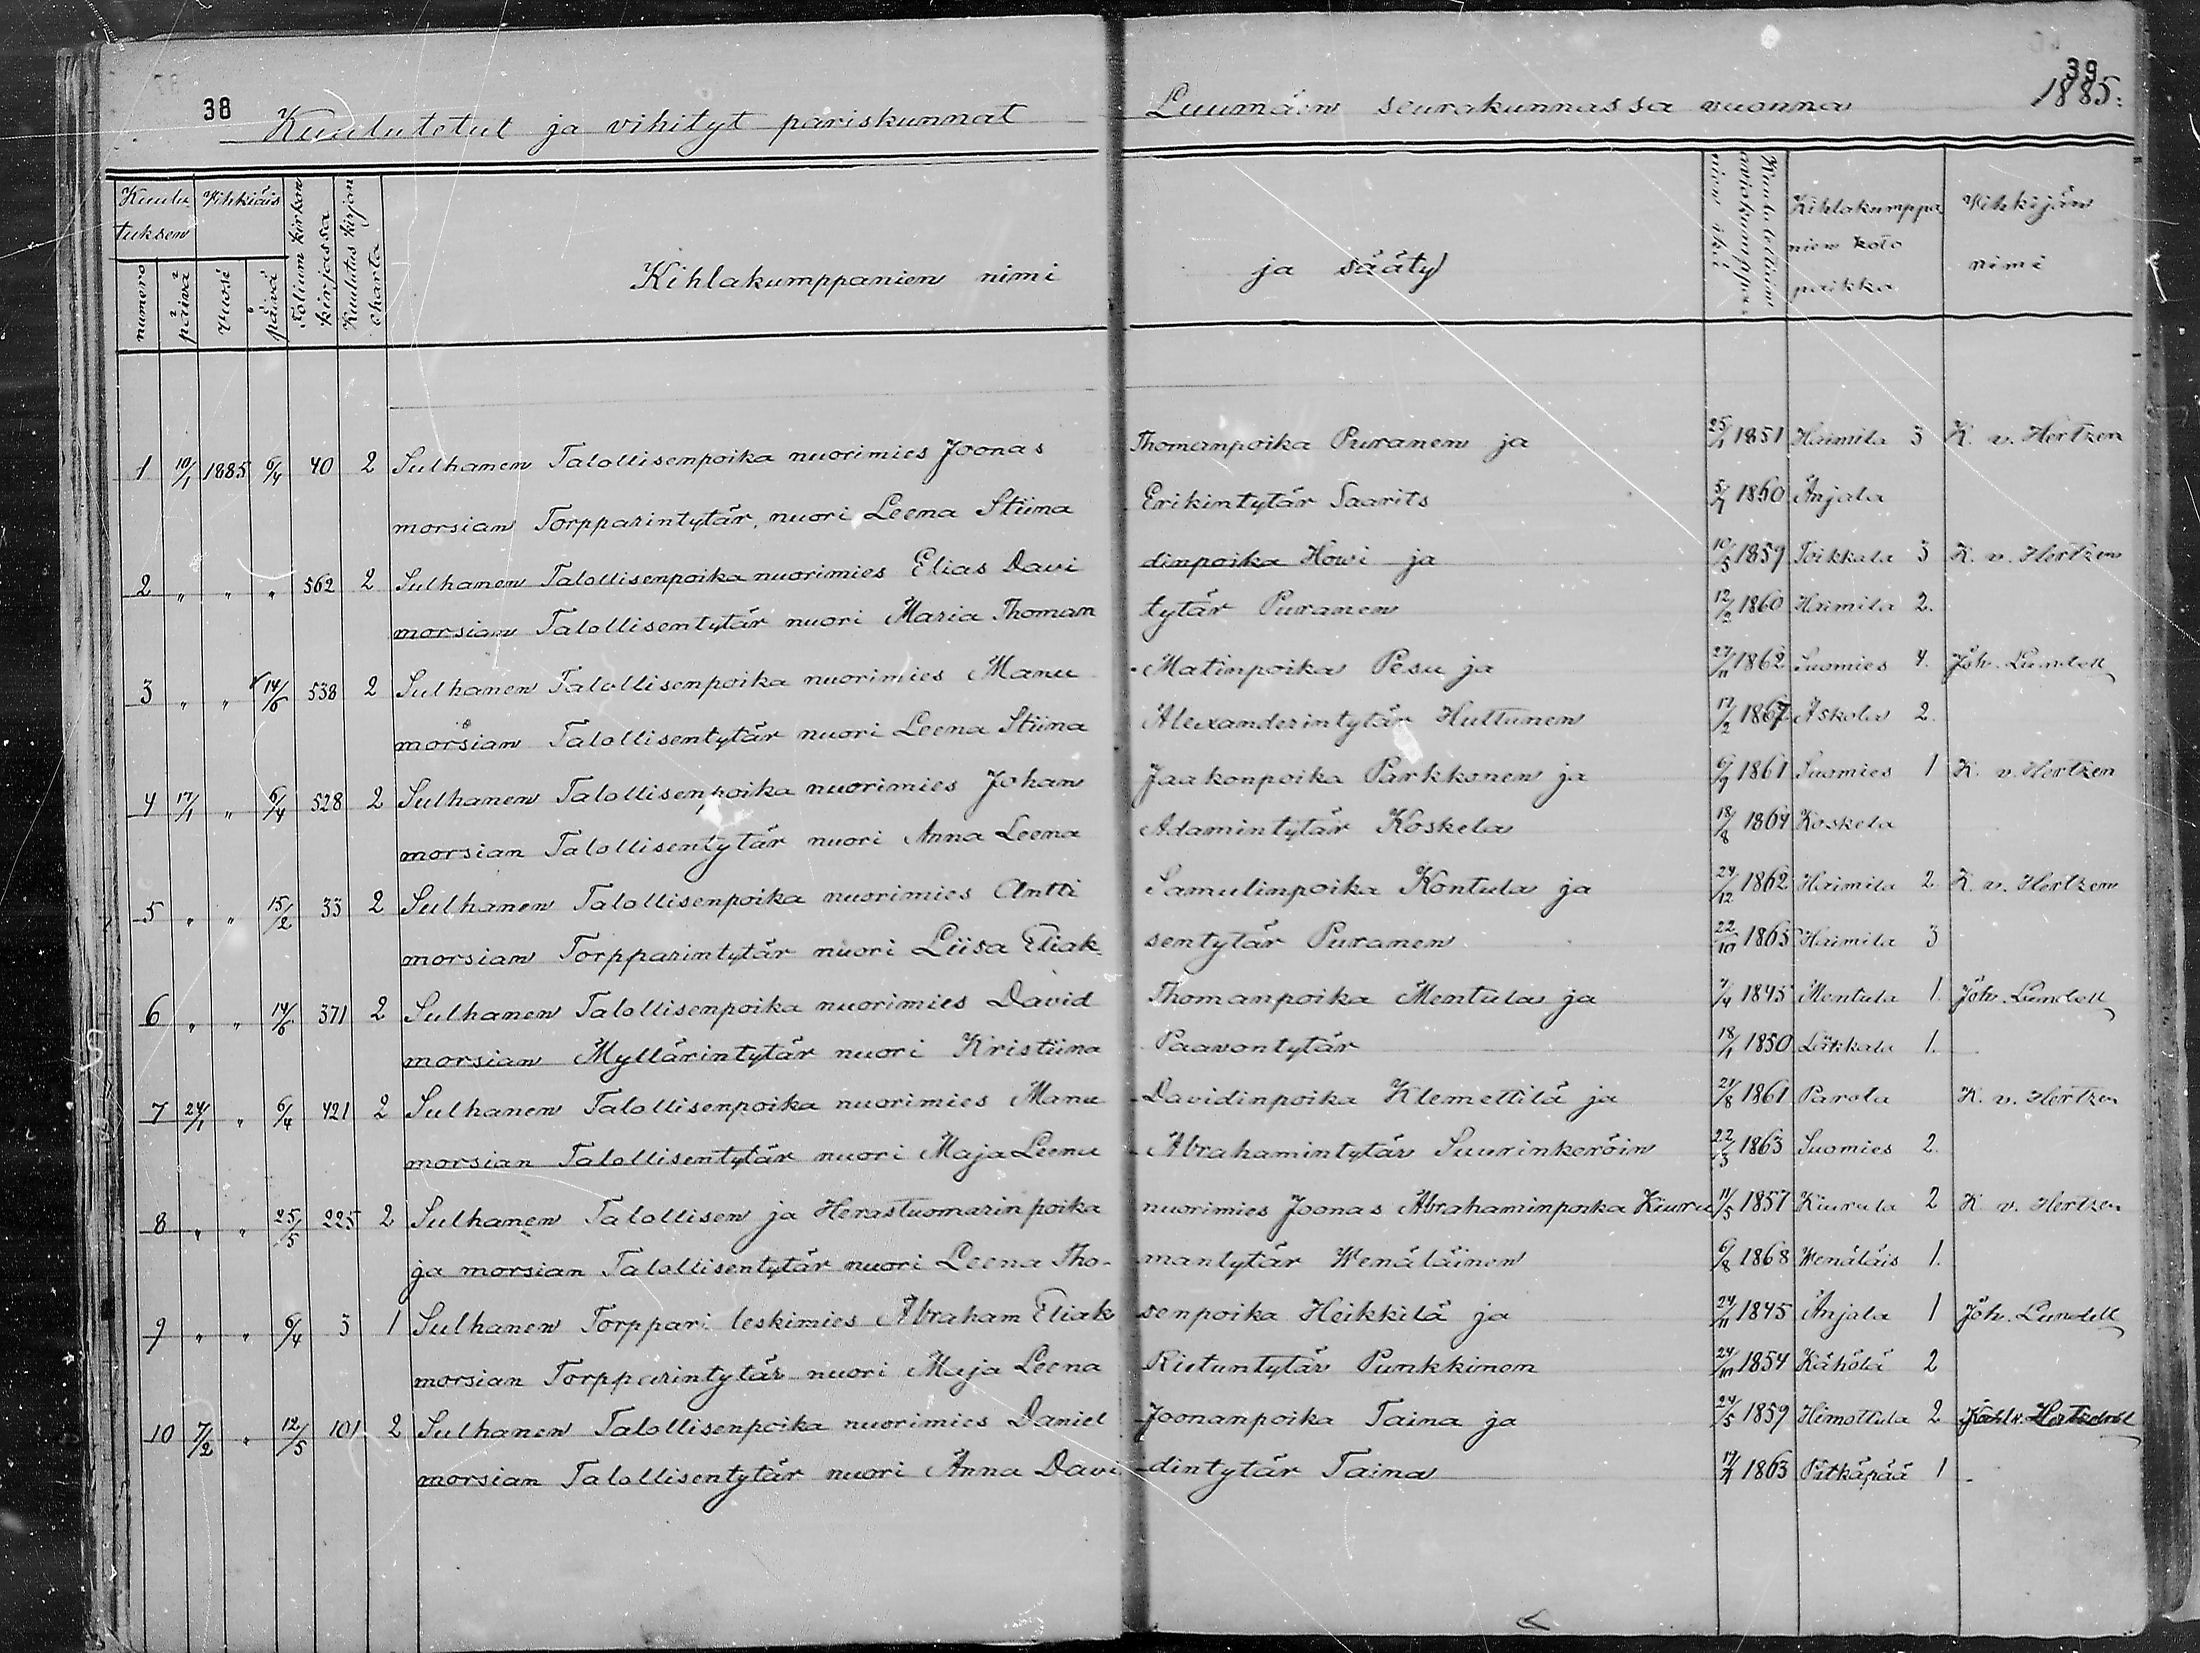 38
39
Kuulutetut ja vihityt pariskunnat Luumäen seurakunnassa vuonna 1885.
Kuulutuksen Vihkiäis Folium kirkonkirjassa Kuulutus kirjan charta Kihlakumppanien nimi ja sääty Kihlakumppanien koto paikka Vihkijän nimi
numero päivä vuosi päivä
1 10/1 1885 6/4 40 2 Sulhanen Talollisenpoika nuorimies Joonas Thomanpoika Puranen ja 25/1 1851 Haimila 3 K. v. Hertzen
morsian Torpparintytär, nuori Leena Stiina Erikintytär Saarits 1860 Anjala
2 " " " 562 2 Sulhanen Talollisenpoika nuorimies Elias Davidinpoika Howi ja 10/3 1859 Toikkala 3 K. v. Hertzen
morsian Talollisentytär nuori Maria Thomantytär Puranen 12/2 1860 Haimila 2.
3 " " 14/6 538 2 Sulhanen Talollisenpoika nuorimies Manu Matinpoika Pesu ja 27/11 1862 Suomies 4. Joh. Lundell
morsian Talollisentytär nuori Leena Stiina Alexanderintytär Huttunen 17/2 1867 Askola 2.
4 17/1 " 6/4 528 2 Sulhanen Talollisenpoika nuorimies Johan Jaakonpoika Parkkonen ja 1861 Suomies 1 K. v. Hertzen
morsian Talollisentytär nuori Anna Leena Adamintytär Koskela 18/8 1864 Koskela
5 " " 15/2 33 2 Sulhanen Talollisenpoika nuorimies Antti Samulinpoika Kontula ja 24/12 1862 Haimila 2 K. v. Hertzen
morsian Torpparintytär nuori Liisa Eliaksentytär Puranen 22/10 1865 Haimila 3
6 " " 14/6 371 2 Sulhanen Talollisenpoika nuorimies David Thomanpoika Mentula ja 7/4 1845 Mentula 1. Joh. Lundell
morsian Myllärintytär nuori Kristiina Paavontytär 18/1 1850 Lätkkala 1.
7 24/1 " 6/4 421 2 Sulhanen Talollisenpoika nuorimies Manu Davidinpoika Klemettilä ja 21/8 1861 Parola K. v. Hertzen
morsian Talollisentytär nuori Maja Leena Abrahamintytär Suurinkeröin 22/3 1863 Suomies 2.
8 " " 25/5 225 2 Sulhanen Talollisen ja Herastuomarin poika nuorimies Joonas Abrahaminpoika Kiuru 11/5 1857 Kiurula 2 K v. Hertzen
ja morsian Talollisentytär nuori Leena Thomantytär Wenäläinen 6/8 1868 Wenäläis 1.
9 " " 6/4 3 1 Sulhanen Torppari leskimies Abraham Eliaksenpoika Heikkilä ja 24/11 1845 Anjala 1 Joh. Lundell
morsian Torpparintytär nuori Maja Leena Riitun tytär Punkkinen 24/10 1854 Kähölä 2
10 7/2 " 12/5 101 2 Sulhanen Talollisenpoika nuorimies Daniel Joonanpoika Taina ja 24/5 1859 Himottula 2
morsian Talollisentytär nuori Anna Davidintytär Taina 1863 Pitkäpää 1